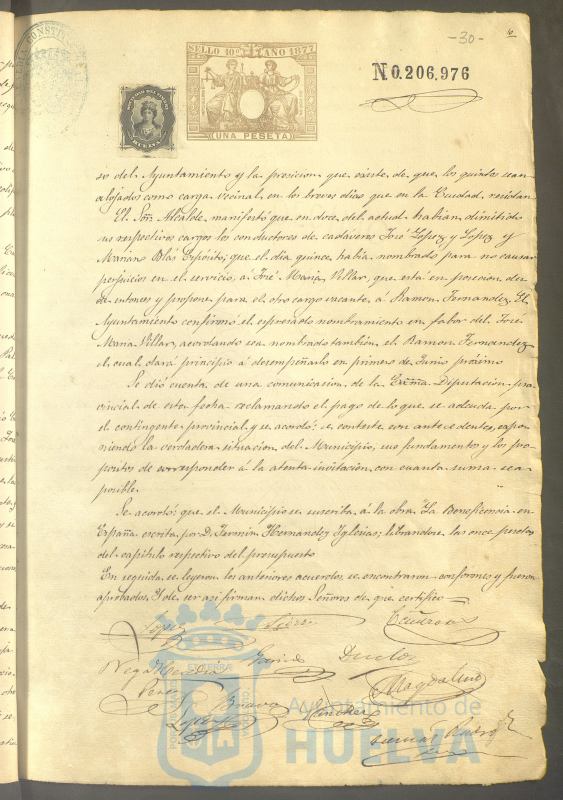 -30-
SELLO 10º AÑO 1877
UNA PESETA
N0.206,976
so del Ayuntamiento y la precision que existe de que los quintos sean
alojados como carga vecinal, en los breves dias que en la Ciudad residan
El Sor. Alcalde, manifestó que en doce del actual habian dimitido
sus respectivos cargos los conductores de cadáveres José Lopez y Lopez y
Mariano Blás Expósito; que el dia quince habia nombrado para no causar
perjuicios en el servicio, a José Maria Villar, que está en posecion des-
de entonces y propone para el otro cargo vacante, á Ramon Fernandez. El
Ayuntamiento confirmó el espresado nombramiento en fabor del José
Maria Villar, acordando sea nombrado también el Ramon Fernandez
el cual dará principio á desempeñarlo en primero de Junio próximo
Se dió cuenta de una comunicacion de la Exma. Diputacion pro-
vincial de esta fecha reclamando el pago de lo que se adeuda por
el contingente provincial, y se acordó: se conteste con antecedentes, espo-
niendo la verdadera situacion del Municipio, sus fundamentos y los pro-
positos de corresponder á la atenta invitacion con cuanta suma sea
posible.
Se acordó: que el Municipio se suscriba á la obra "La Beneficencia en
España escrita por D. Fermin Hernandez Iglesias, librandose las once pesetas
del capitulo respectivo del presupuesto
En seguida se leyeron los anteriores acuerdos, se encontraron conformes y fueron
aprobados. Y de ser asi firman dichos Señores de que certifico
Lopez
Garcia
Duclos
Perez
Bravo
Magdaleno
Sanchez
Lopez
Ayuntamiento de
HUELVA